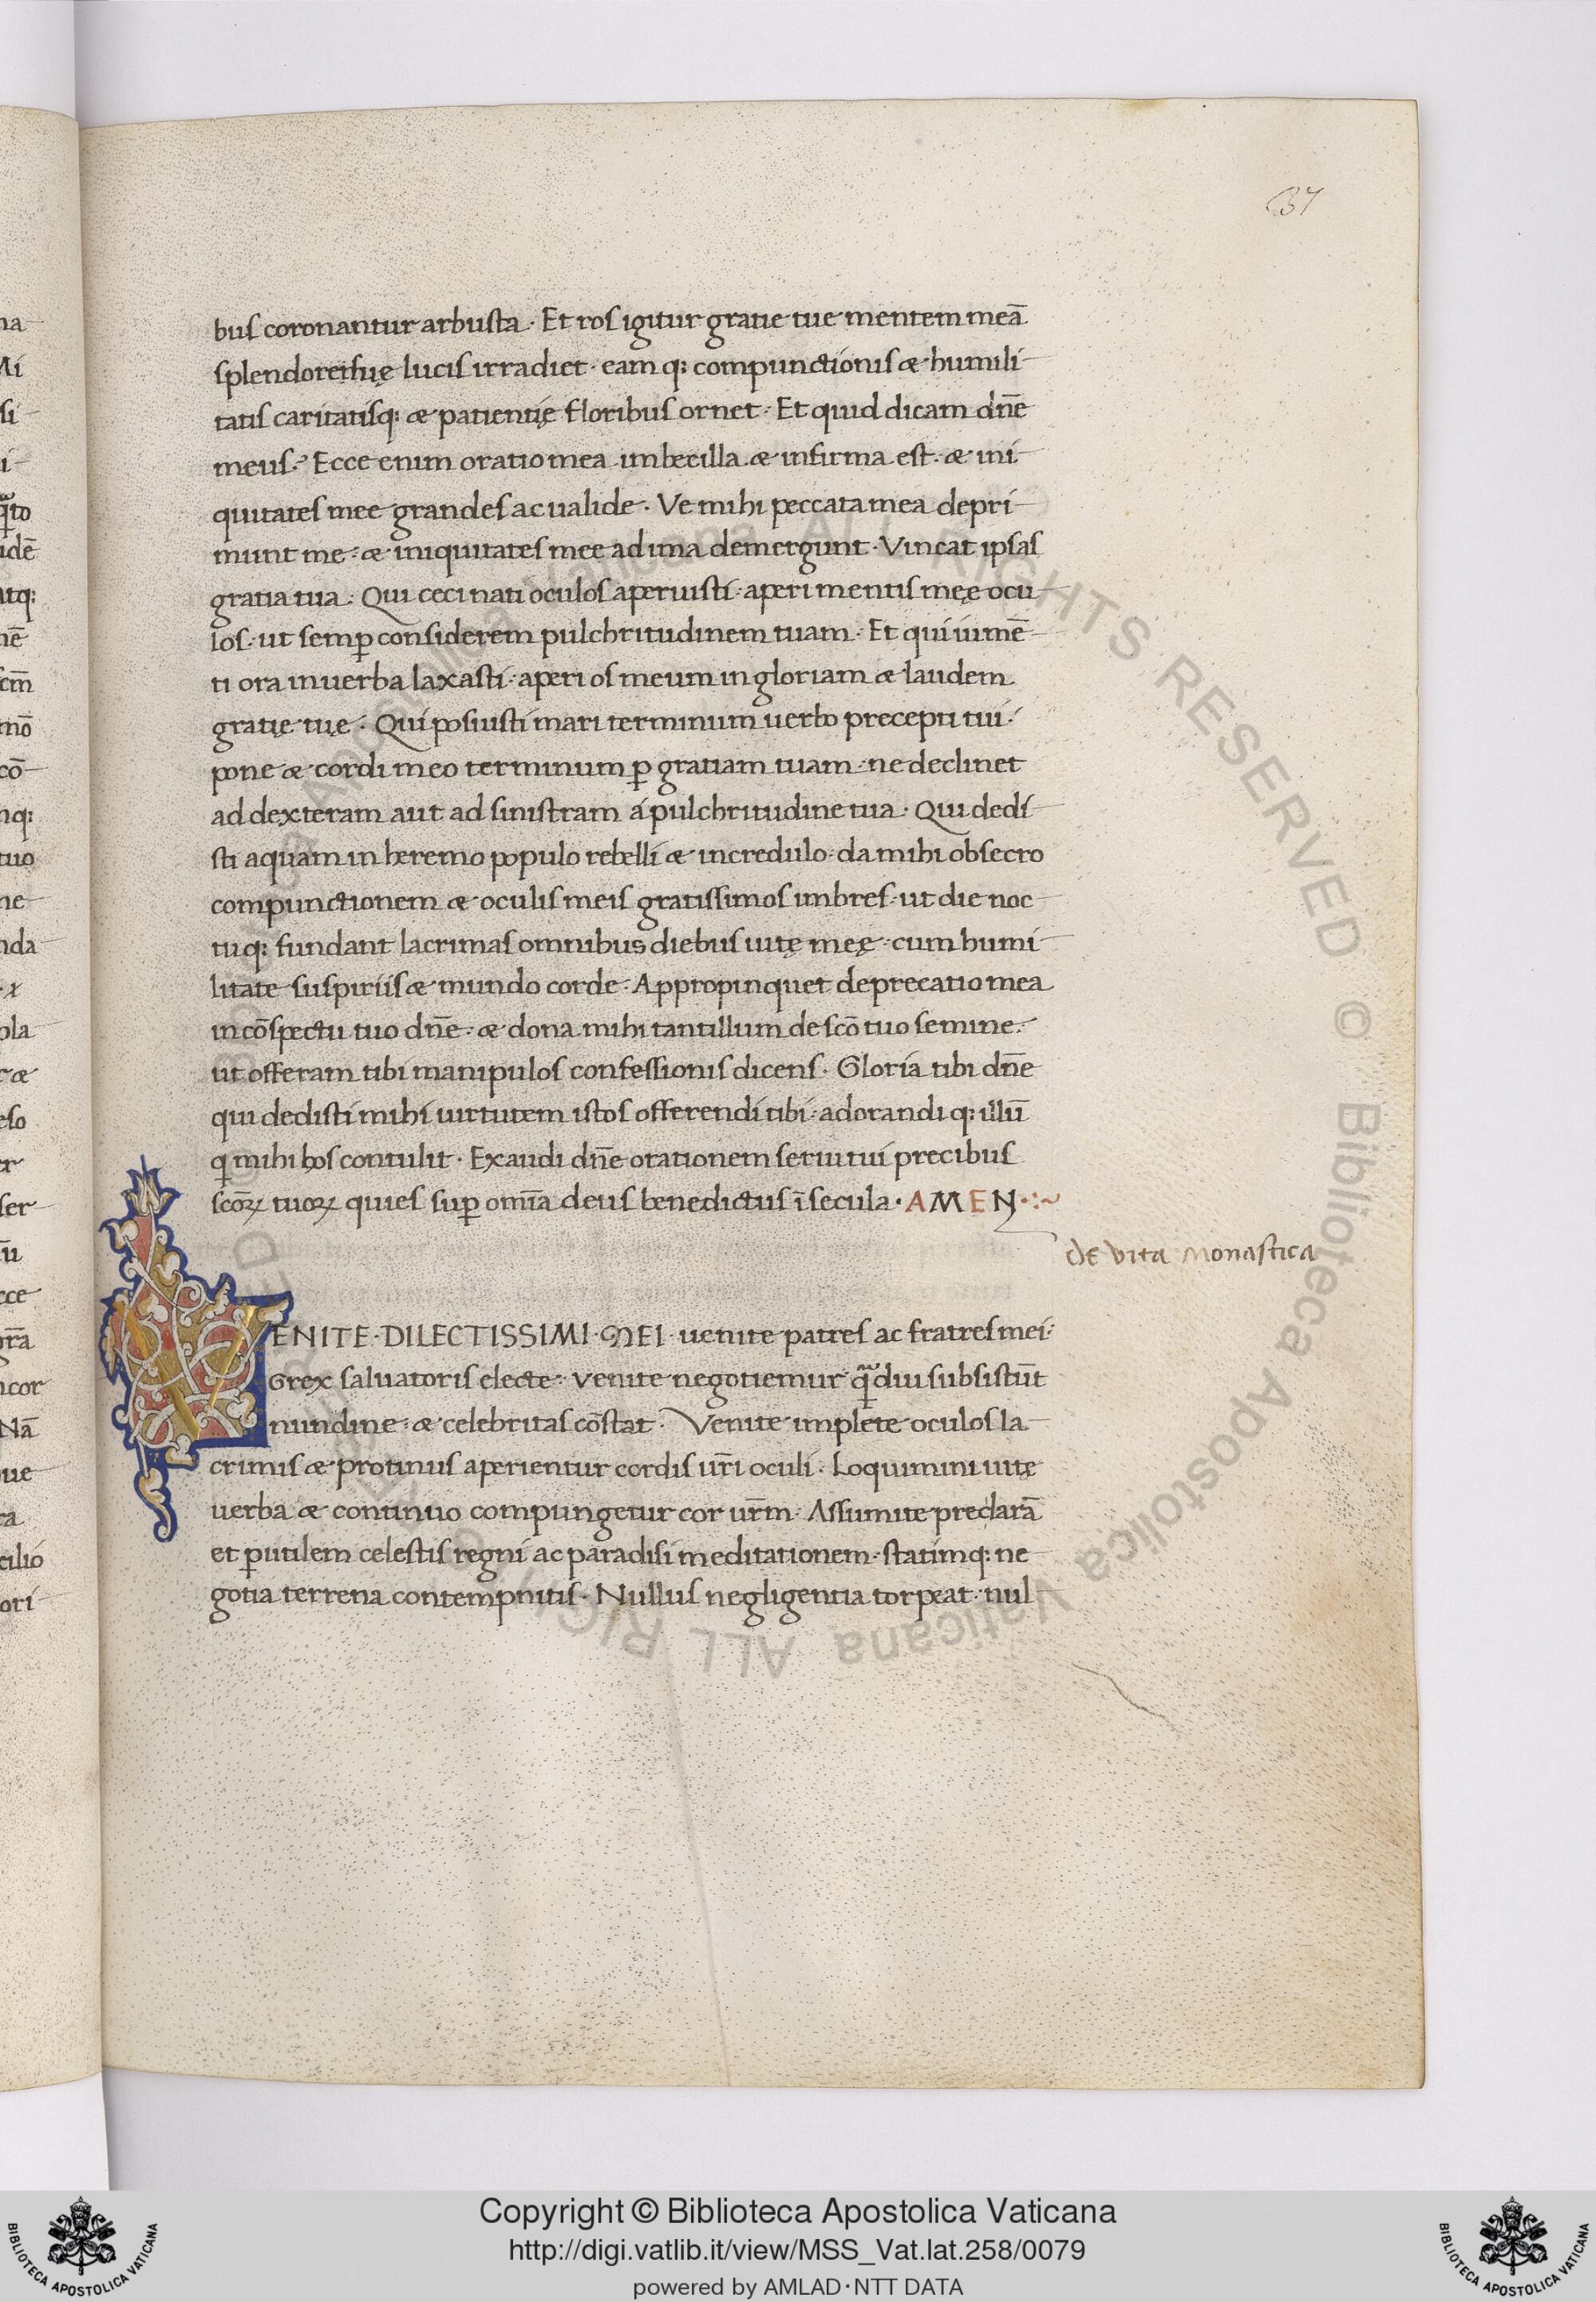 37
bus coronantur arbusta · Et ros igitur gratie tue mentem meā
splendore suę lucis irradiet · eam q: compunctionis æ humili
tatis caritatisq: æ patientię floribus ornet · Et quid dicam dn̄e
meus? Ecce enim oratio mea imbecilla æ infirma est · æ ini
quitates mee grandes ac ualide · Ve mihi peccata mea depri
munt me · æ iniquitates mee ad ima demergunt · Vincat ipsas
gratia tua · Qui ceci nati oculos aperuisti · aperi mentis meę ocu
los · ut semp̱ considerem pulchritudinem tuam · Et qui iumē
ti ora in uerba laxasti · aperi os meum in gloriam æ laudem
gratię tuę · Qui posuisti mari terminum uerbo precepti tui ·
pone æ cordi meo terminum p̱ gratiam tuam · ne declinet
ad dexteram aut ad sinistram á pulchritudine tua · Qui dedi
sti aquam in heremo populo rebelli æ incredulo · da mihi obsecro
compunctionem æ oculis meis gratissimos imbres · ut die noc
tuq: fundant lacrimas omnibus diebus uitę meę · cum humi
litate suspiriis æ mundo corde · Appropinquet deprecatio mea
in cōspectu tuo dn̄e · æ dona mihi tantillum de scō tuo semine ·
ut offeram tibi manipulos confessionis dicens · Gloria tibi dn̄e
qui dedisti mihi uirtutem istos offerendi tibi · adorandi q: illū
q mihi hos contulit · Exaudi dn̄e orationem serui tui precibus
scōꝝ tuoꝝ quies sup̱ om̄ia deus benedictus ī secula · AMEN ·:~
de vita monastica
VENITE · DILECTISSIMI · MEI · uenite patres ac fratres mei ·
Grex saluatoris electe · venite negotiemur q̄diu subsistūt
nundine · æ celebritas cōstat · Venite implete oculos la
crimis æ protinus aperientur cordis ur̄i oculi · Loquimini uitę
uerba æ continuo compungetur cor ur̄m · Assumite preclarā
et p̱utilem celestis regni ac paradisi meditationem · statimq: ne
gotia terrena contempnitis · Nullus negligentia torpeat · nul
© Biblioteca Apostolica Vaticana ALL RIGHTS RESERVED
Copyright © Biblioteca Apostolica Vaticana
http://digi.vatlib.it/view/MSS_Vat.lat.258/0079
powered by AMLAD·NTT DATA
BIBLIOTECA APOSTOLICA VATICANA
BIBLIOTECA APOSTOLICA VATICANA